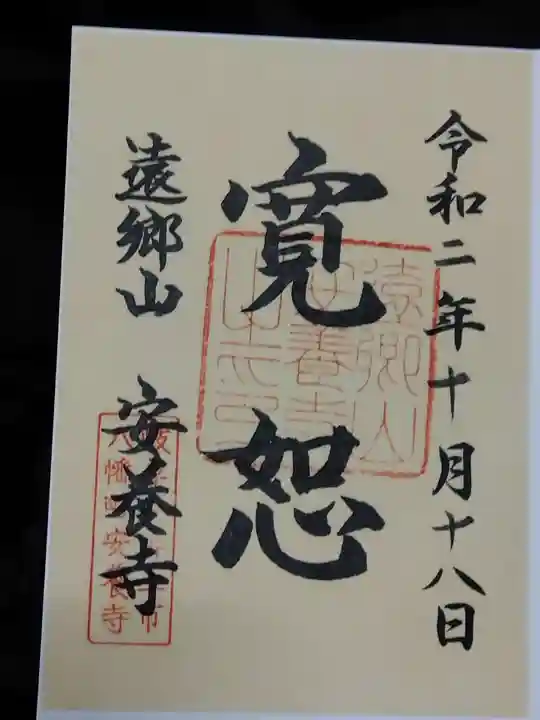 令和二年十月十八日
寛恕
遠郷山 安養寺
遠郷山
安養寺
八幡町安養寺